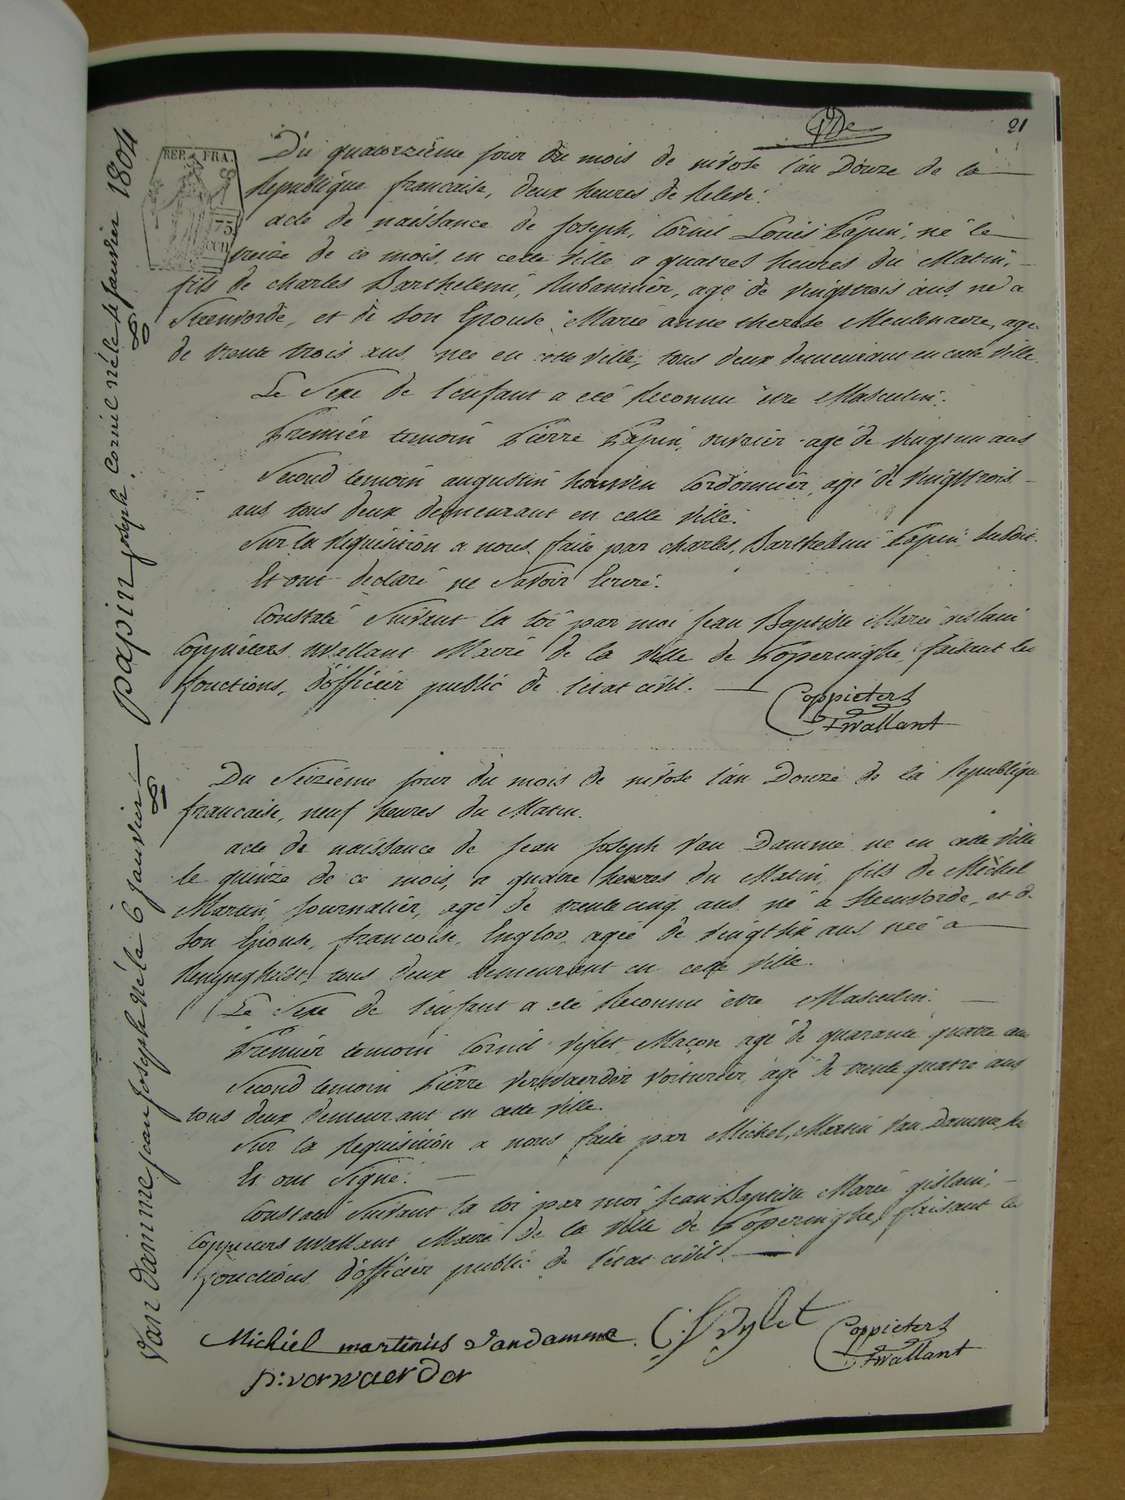 21
REP. FRA.
75
Du quatorziéme jour du mois de nivose l'an Douze de la
Republique francaise, deux heures de Relevé.
acte de naissance de Joseph, Cornil Louis Papin, né le
treize de ce mois, en cette Ville a quatres heures du Matin,
fils de charles Barthelemi, agé de Vingttrois ans, né a
Steenvorde, et de Son Epouse, Marie anne therese Meulenaere, agée
de trente trois ans, née en cette Ville, tous deux demeurant en cette Ville
Le Sexe de l'enfant a eté Reconnu être Masculin.
Premiér temoin Piérre Papin, ouvriér agé de Vingt un ans
Second temoin augustin Cordonniér, agé de Vingttrois
ans tous deux demeurant en cette Ville.
Sur la Requisition a nous faite par charles, Barthelemi Papin, Susdit.
Et ont declaré ne Savoir Ecrire.
Constaté Suivant la loi par moi Jean Baptiste Marie Gislain
Coppieters Wallant Maire de la Ville de Poperinghe, faisant les
fonctions, d'officier public de l'etat civil.
Coppieters
twallant
papin joseph, Cornil né le 4 janvier 1804
Du Seiziéme jour du mois de nivose l'an Douze de la Republique
francaise, neuf heures du Matin.
acte de naissance de Jean Joseph Van Damme né en cette Ville
le quinze de ce mois, a quatre heures du Matin, fils de Michel
Martin, Journaliér, agé de trente cinq ans né a Steenvorde, et de
Son Epouse, francoise, Engloo, ageé de Vingtsix ans neé a
Renynghelst tous deux demeurant en cette Ville.
Le Sexe de l'enfant a eté Reconnu être Masculin.
Premiér temoin Cornil Vylet, Maçon agé de quarante quatre ans
Second temoin Piérre Verwaerder Voiturier, agé de trente quatre ans
tous deux demeurant en cette Ville.
Sur la Requisition a nous faite par Michel, Martin Van Damme,
Et ont Signé.
Constaté Suivant la loi par moi Jean Baptiste Marie gislain,
Coppieters Wallant Maire de la Ville de Poperinghe, faisant les
fonctions d'officier public de l'etat civil.
Michiel martinus Vandamme. C: Vylet
Coppieters
twallant
p: verwaerder
Van Damme jean joseph né le 6 janvier